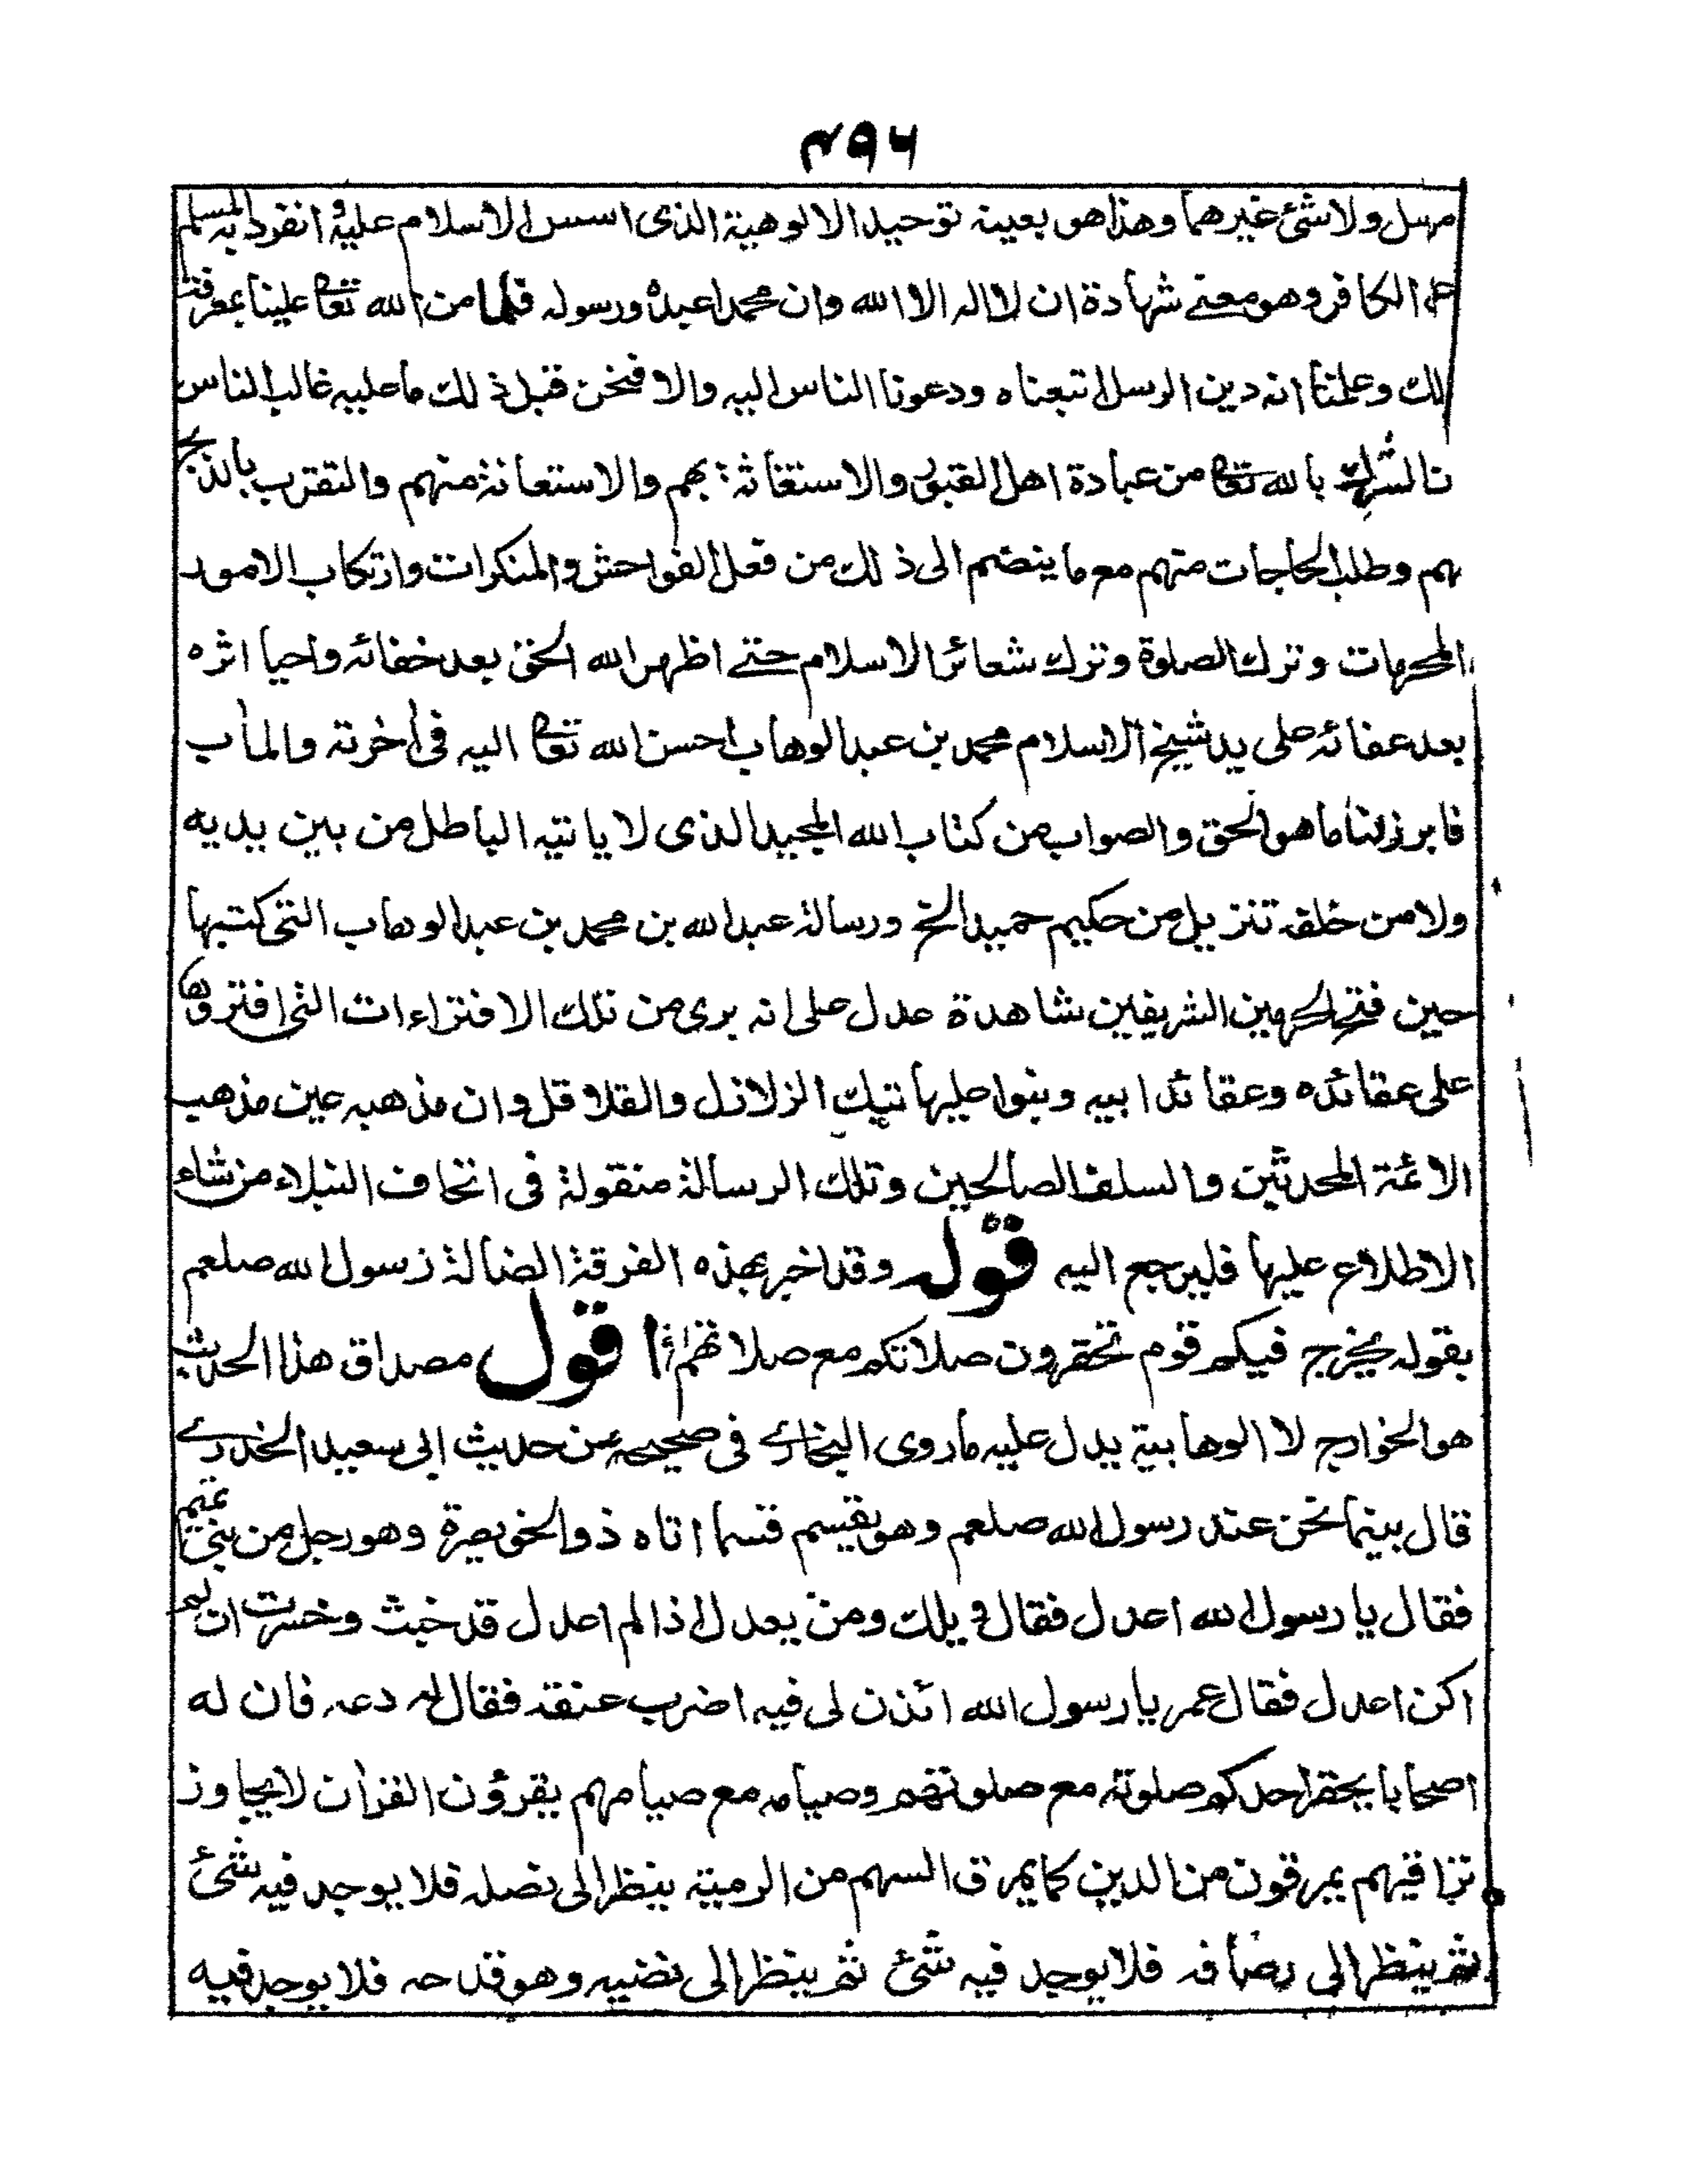 ۴۹۶
مرسل ولا شئ غيرهما وهذا هو بعينه توحيد الالوهية الذى اسس الاسلام عليه وانفرد به المسلم
عن الكافر وهو معنے شهادة ان لا اله الا الله وان محمدا عبده ورسوله فلما من الله تعا علينا بمعرفة
لك وعلمنا انه دين الرسل اتبعناه ودعونا الناس اليه والا فنحن قبل ذلك ما عليه غالب الناس
نا لشرك بالله تعا من عبادة اهل القبور والاستغاثة بهم والاستعانة منهم والتقرب بالذبح
بهم وطلب الحاجات منهم مع ما ينضم الى ذلك من فعل الفواحش والمنكرات وارتكاب الامور
المحرمات وترك الصلوة وترك شعائر الاسلام حتے اظهر الله الحق بعد خفائه واحيا اثره
بعد عفائه على يد شيخ الاسلام محمد بن عبد الوهاب احسن الله تعا اليه فى أخرته والمأب
فابرز لنا ما هو الحق والصواب من كتاب الله المجيد الذى لا ياتيه الباطل من بين يديه
ولا من خلفه تنزيل من حكيم حميد الخ ورسالة عبد الله بن محمد بن عبد الوهاب التى كتبها
حين فتح الحرمين الشريفين شاهدة عدل على انه برى من تلك الافتراءات التى افتروها
على عقائده وعقائد ابيه وبنوا عليها تيك الزلازل والقلاقل وان مذهبه عين مذهب
الائمة المحدثين والسلف الصالحين وتلك الرسالة منقولة فى اتحاف النبلاء من شاء
الاطلاع عليها فليرجع اليه قوله وقد اخبر بهذه الفرقة الضالة رسول الله صلعم
بقوله يخرج فيكم قوم تحقرون صلاتكم مع صلاتهم أقول مصداق هذا الحديث
هو الخوارج لا الوهابية يدل عليه ما روى البخارے فى صحيحه من حديث ابى سعيد الخدرے
قال بينما نحن عند رسول الله صلعم وهو يقسم قسما اتاه ذو الخويصرة وهو رجل من بنى تميم
فقال يا رسول الله اعدل فقال ويلك ومن يعدل اذا لم اعدل قد خبت وخسرت ان لم
اكن اعدل فقال عمر يا رسول الله ائذن لى فيه اضرب عنقه فقال له دعه فان له
اصحابا يحقر احدكم صلوته مع صلوتهم وصيامه مع صيامهم يقرؤن القرأن لا يجاوز
تراقيهم يمرقون من الدين كما يمرق السهم من الرمية ينظر الى نصله فلا يوجد فيه شئ
ثم ينظر الى رصافه فلا يوجد فيه شئ ثم ينظر الى نضيه وهو قدحه فلا يوجد فيه